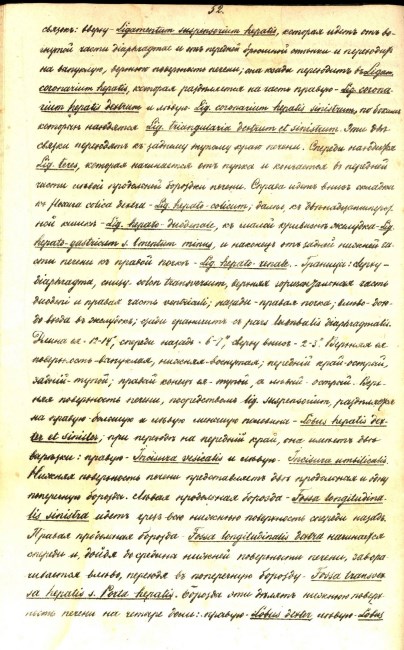 52.
связокъ: вверху - Ligamentum suspensorium hepatis, которая идетъ отъ во-
гнутой части diaphragmae и отъ передней брюшной стѣнки и переходитъ
на выпуклую, верхнюю поверхность печени; она сзади переходитъ въ Ligam.
coronarium hepatis, которая раздѣляется на часть правую - Lig. corona-
rium hepatis dextrum и лѣвую - Lig. coronarium hepatis sinistrum, по бокамъ
которыхъ находятся Lig. triangularia dextrum et sinistrum. Эти двѣ
связки переходятъ къ заднему тупому краю печени. Спереди находится
Lig. teres, которая начинается отъ пупка и кончается въ передней
части лѣвой продольной бороздки печени. Справа идетъ внизъ складка
къ flexura colica dextra - Lig. hepato-colicum; далѣе къ двѣнадцатиперст-
ной кишкѣ - Lig. hepato-duodenale, къ малой кривизнѣ желудка - Lig.
hepato-gastricum s. Omentum minus, и наконецъ отъ задней нижней ча-
сти печени къ правой почкѣ - Lig. hepato-renale. - Граница: сверху -
diaphragma, снизу - colon transversum, верхняя горизонтальная часть
duodeni и правая часть ventriculi; назади - правая почка; влѣво - до
входа въ желудокъ; сзади граничитъ съ pars lumbalis diaphragmatis.
Длина ея - 12-14", спереди назадъ - 6-7", сверху внизъ - 2-3". Верхняя ея
поверхность - выпуклая, нижняя - вогнутая; передній край - острый,
задній - тупой; правый конецъ ея - тупой, а лѣвый - острый. Верх-
няя поверхность печени, посредствомъ lig. suspensorium, раздѣляется
на правую - большую и лѣвую меньшую половины - Lobus hepatis dex-
ter et sinister; при переходѣ на передній край, она имѣетъ двѣ
вырѣзки: правую - Incisura vesicalis и лѣвую - Incisura umbilicalis.
Нижняя поверхность печени представляетъ двѣ продольныя и одну
поперечную борозды. Лѣвая продольная борозда - Fossa longitudina-
lis sinistra идетъ чрезъ всю нижнюю поверхность спереди назадъ.
Правая продольная борозда - Fossa longitudinalis dextra начинается
спереди и, дойдя до средины нижней поверхности печени, завора-
чивается влѣво, переходя въ поперечную борозду - Fossa transver-
sa hepatis s. Porta hepatis. Борозды эти дѣлятъ нижнюю поверх-
ность печени на четыре доли: правую - Lobus dexter лѣвую - Lobus